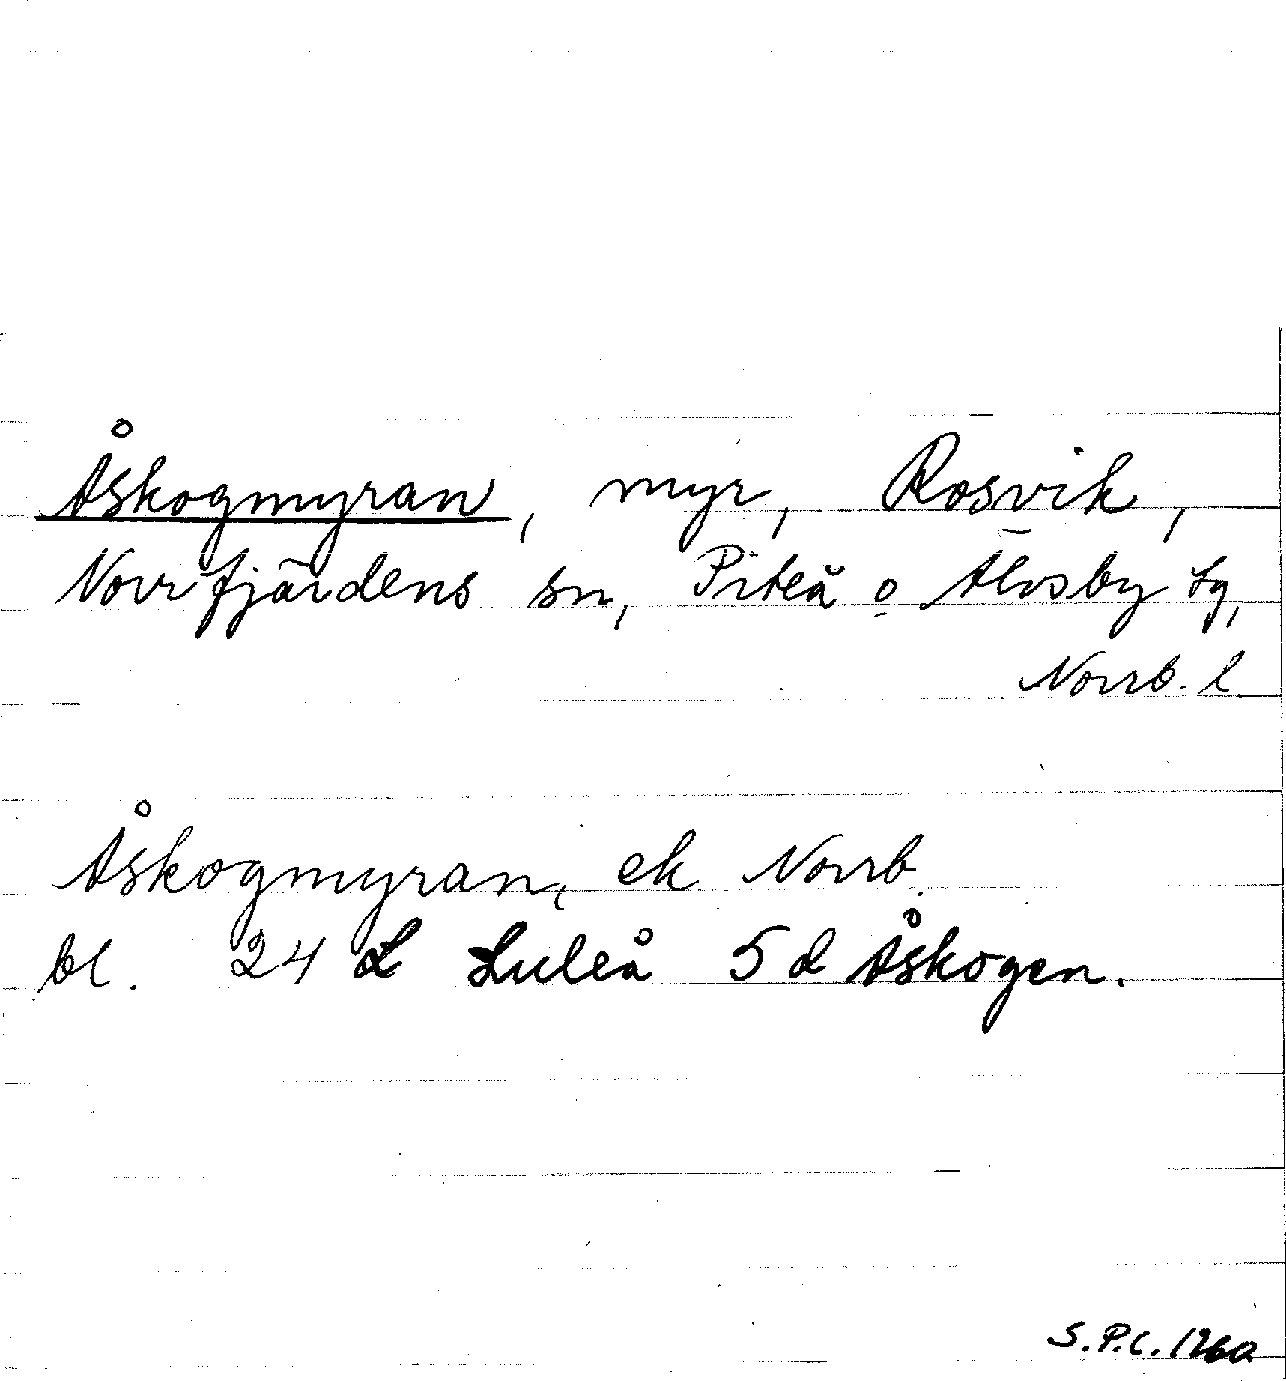 Åskogmyran, myr, Rosvik,
Norrfjärdens sn, Piteå o Älvsby tg,
Norrb. l
Åskogmyran, ek Norrb.
bl. 24 L Luleå 5 d Åskogen.
S.P.C. 126a